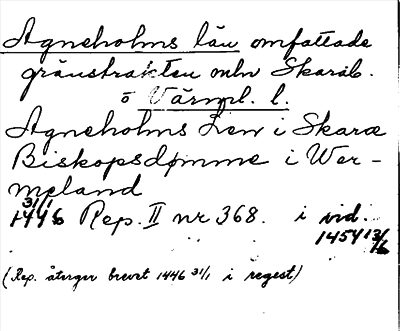 Agneholms län omfattade
gränstrakten mln Skarab.
o Värml. l.
Agneholms Len i Skaræ
Biskopsdømme i Wer-
meland
1446 31/1 Rep. II nr 368. i vid.
1454 13/16
(Rep. återger brevet 1446 31/1 i regest)